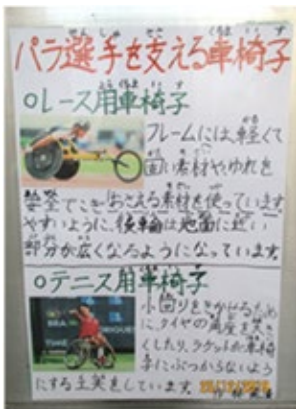 パラ選手を支える車椅子
○レース用車椅子
フレームには、軽くて
固い素材やゆれを
おさえる素材を使っています
やすいように、後輪は地面に近い
部分が広くなるようになっています。
○テニス用車椅子
小回りをきかせるため
に、タイヤの角度を大き
くしたり、ラケットが車椅
子にぶつからないよう
にする工夫をしています。